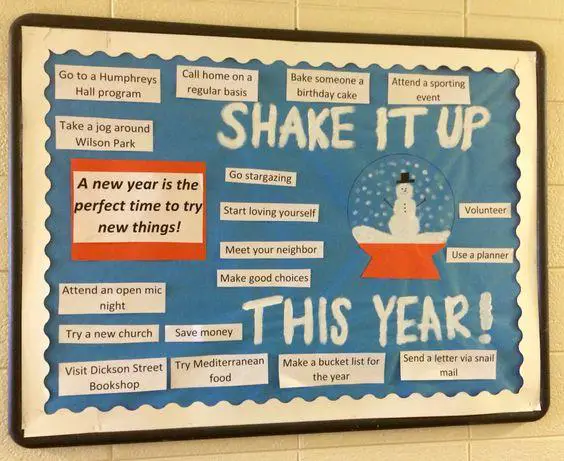 Go to a Humphreys
Hall program
Call home on a
regular basis
Bake someone a
birthday cake
Attend a sporting
event
SHAKE IT UP
Take a jog around
Wilson Park
A new year is the
perfect time to try
new things!
Go stargazing
Start loving yourself
Meet your neighbor
Make good choices
Volunteer
Use a planner
Attend an open mic
night
THIS YEAR!
Try a new church
Save money
Visit Dickson Street
Bookshop
Try Mediterranean
food
Make a bucket list for
the year
Send a letter via snail
mail